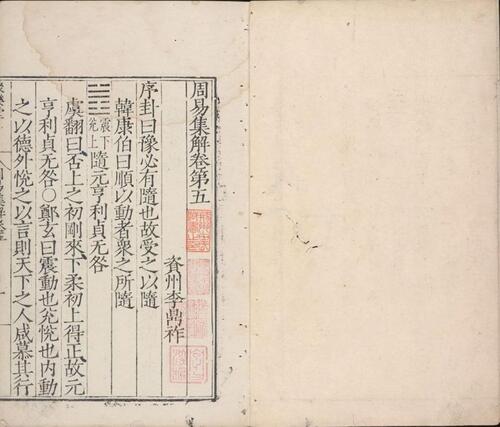 周易集解卷第五
資州李鼎祚
序卦曰豫必有隨也故受之以隨
韓康伯曰順以動者衆之所隨
震下
兊上
隨元亨利貞无咎
虞翻曰否上之初剛來下柔初上得正故元
亨利貞无咎○鄭玄曰震動也兊悅也内動
之以德外悅之以言則天下之人咸慕其行